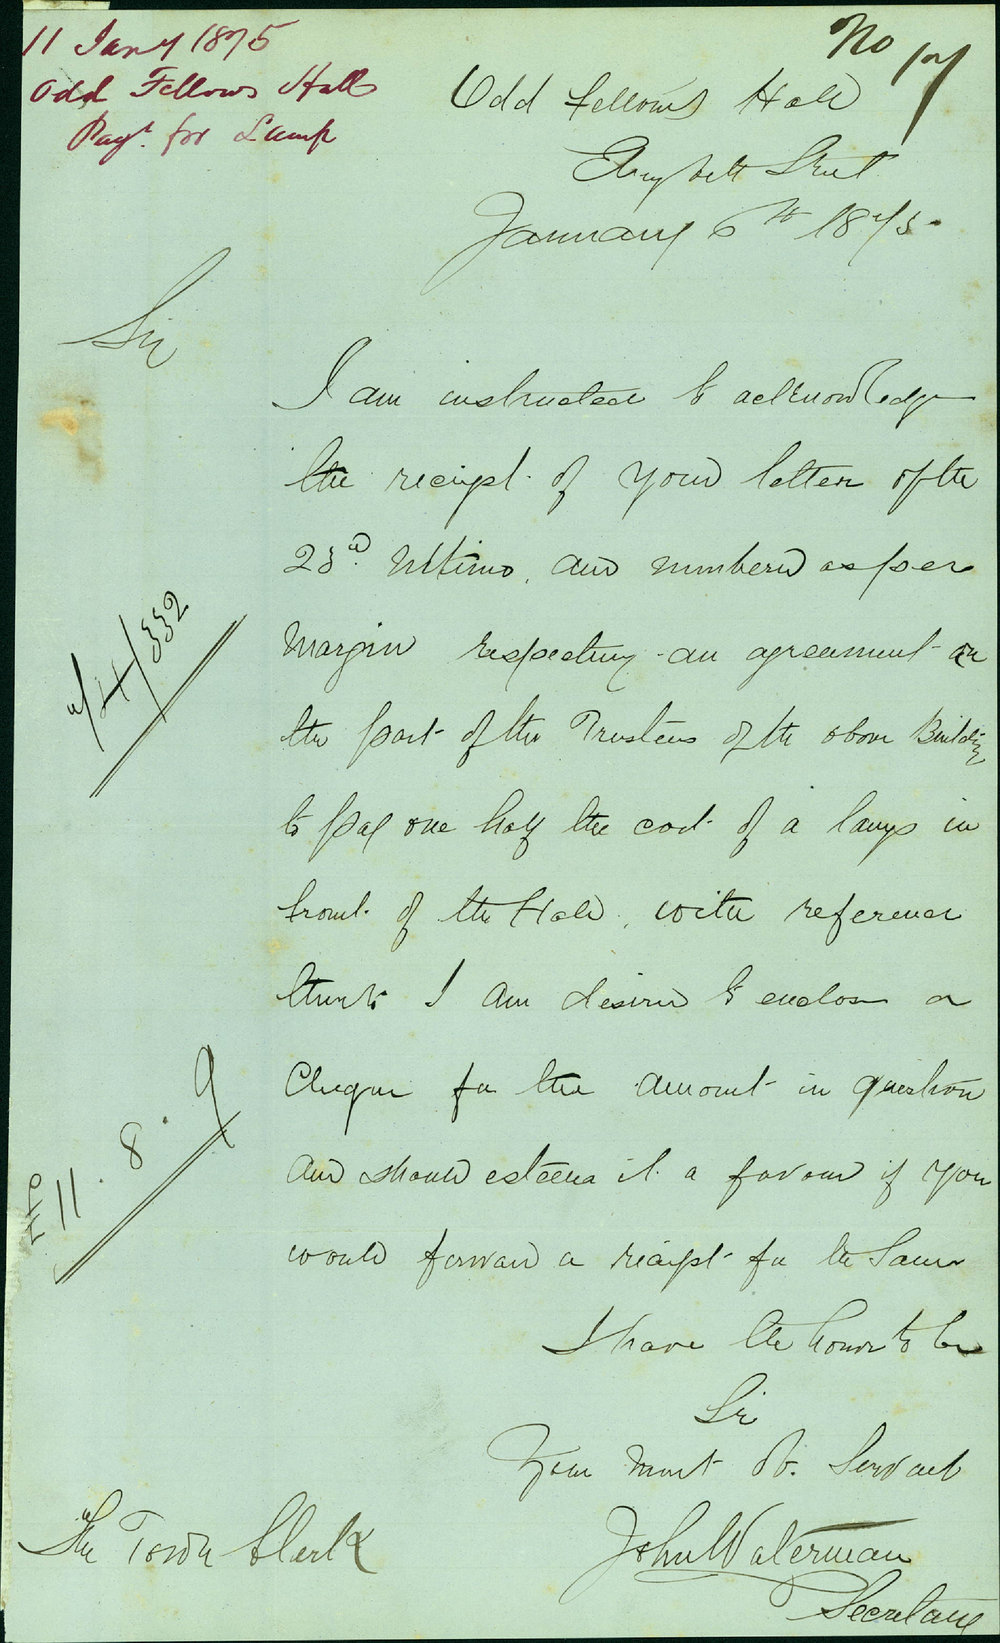 11 Jany 1875
Odd Fellows Hall
Payt. for Lamp
No 17
Odd Fellows Hall
Elizabeth Street
January 6th 1875.
Sir
I am instructed to acknowledge
the receipt of your letter of the
23rd Ultimo, and numbered as per
Margin respecting an agreement on
the part of the Trustees of the above Building
to pay one half the cost of a lamp in
front of the Hall, with reference
thereto I am desired to enclose a
Cheque for the amount in question
and should esteem it a favour if you
would forward a receipt for the Same
I have the honor to be
Sir
Your most Ob. Servant
John Waterman
Secretary
The Town Clerk
/4/332
11. 8. 9